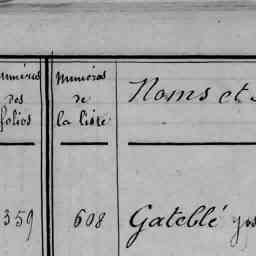 Numéros des folios
Numéros de la liste
Noms et
359 608 Gateblé